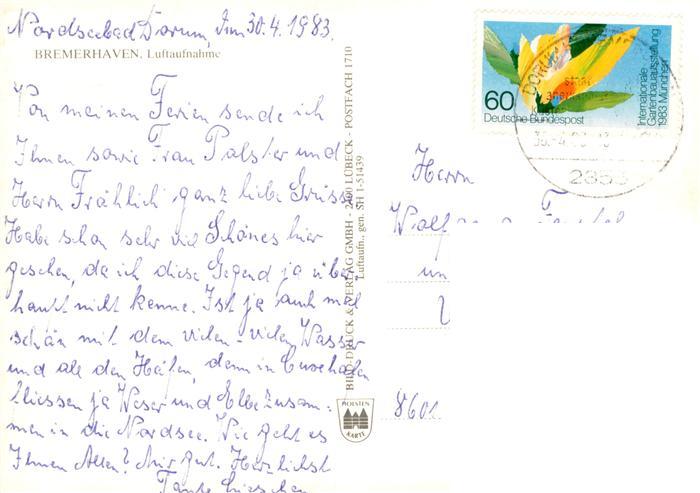 Nordseebad Dorum, Im 30.4.1983.
BREMERHAVEN, Luftaufnahme
Von meinen Ferien sende ich
Ihnen sowie Frau Palster und
Herrn Fröhlich ganz liebe Grüsse
Habe schon sehr viel Schönes hier
gesehen, da ich diese Gegend ja über
haupt nicht kenne. Ist ja auch mal
schön mit dem vielen-vielen Wasser
und all den Häfen, denn in Cuxhafen
fliessen ja Weser und Elbe zusam-
men in die Nordsee. Wie geht es
Ihnen Allen? Mir gut. Herzlichst
Tante
BILD-DRUCK & VERLAG GMBH - 2400 LÜBECK - POSTFACH 1710
Luftaufn., gen. SH 1-51439
HOLSTEN
KARTE
60
Deutsche Bundespost
Internationale
Gartenbauausstellung
1983 München
Herrn
un
8601